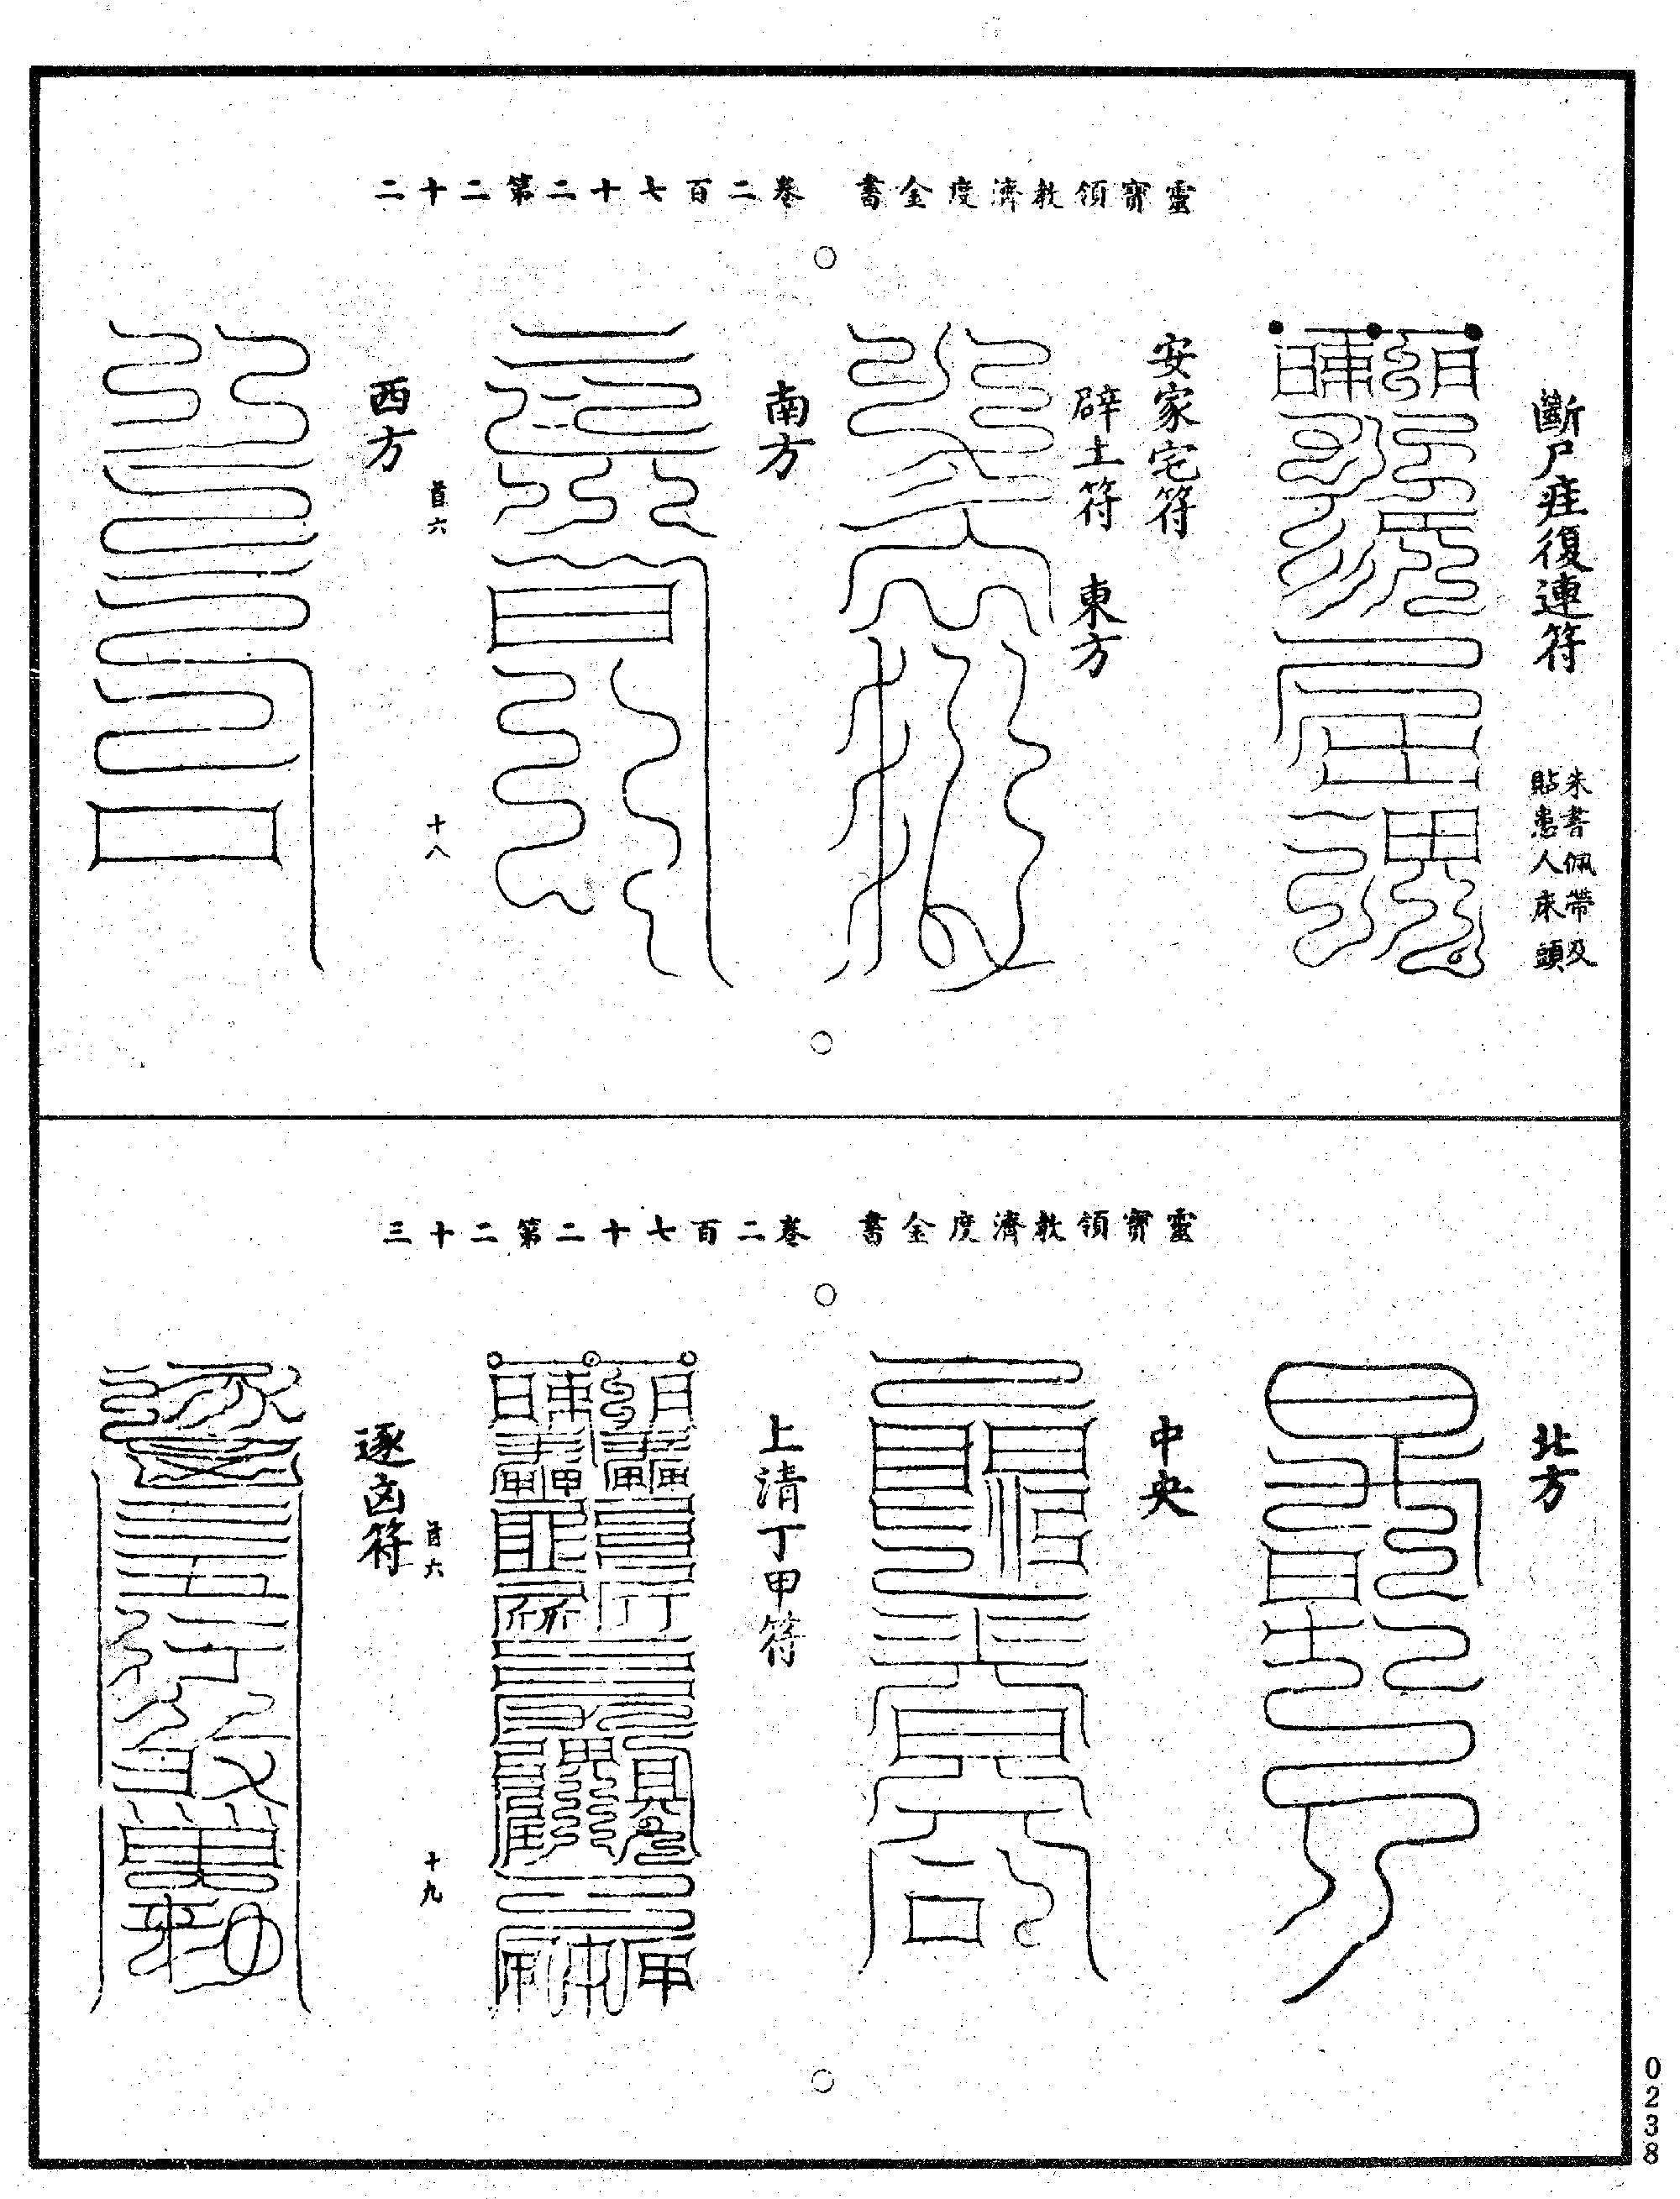 靈寶領教濟度金書 卷二百七十二第二十二
斷尸疰復連符
朱書佩帶及
貼患人床頭
安家宅符
辟土符 東方
南方
首六 十八
西方
靈寶領教濟度金書 卷二百七十二第二十三
北方
中央
上清丁甲符
首六 十九
逐凶符
0238